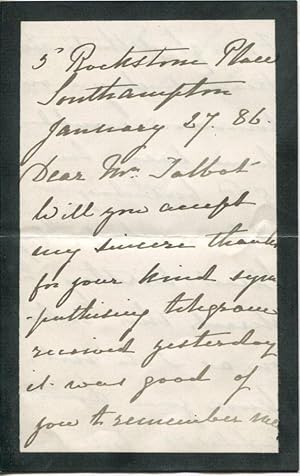 5 Rockstone Place
Southampton
January 27. 86.
Dear Mr. Talbot
Will you accept
my sincere thanks
for your kind sym
-pathising telegram
received yesterday
it was good of
you to remember me.